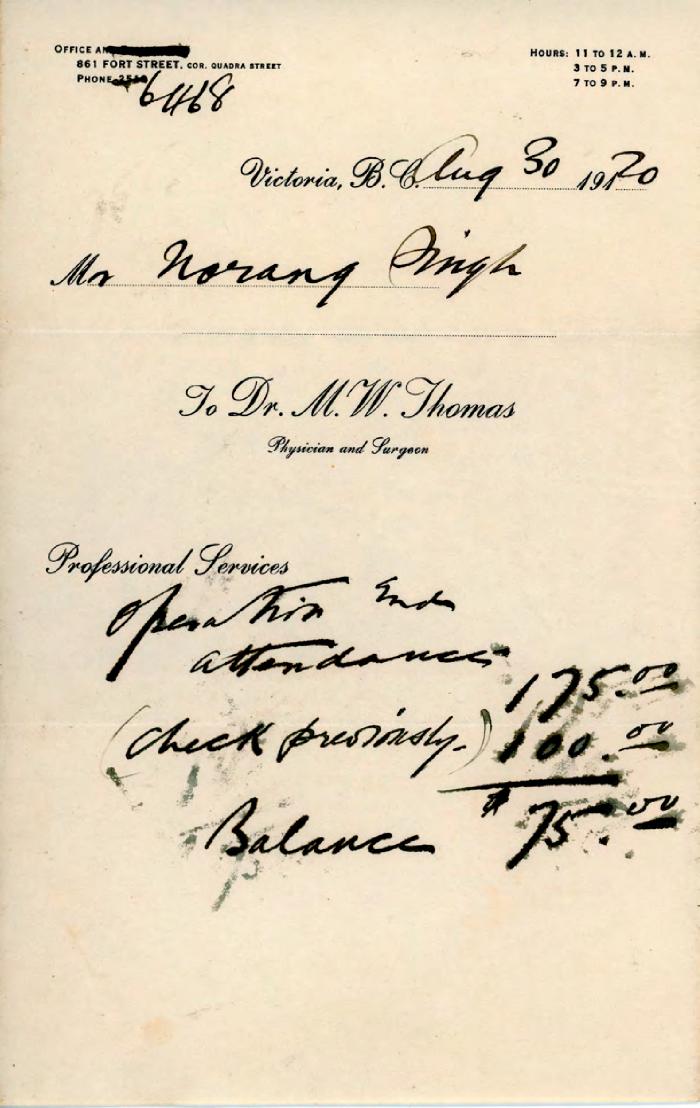 OFFICE AN
861 FORT STREET, COR. QUADRA STREET
PHONE 6468
HOURS: 11 TO 12 A.M.
3 TO 5 P.M.
7 TO 9 P.M.
Victoria, B.C. Aug 30 1920
Mr Norang Singh
To Dr. M. W. Thomas
Physician and Surgeon
Professional Services
Operation and
attendance
175.00
(check previously.) 100.00
Balance $75.00